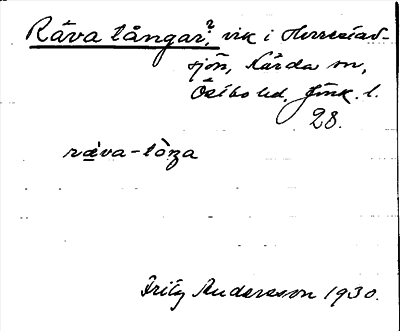 Råva långar?, vik i Herrestad-
sjön, Kärda sn,
Östbo hd, Jönk. l.
28.
råva-lòŋa
Fritz Andersson 1930.